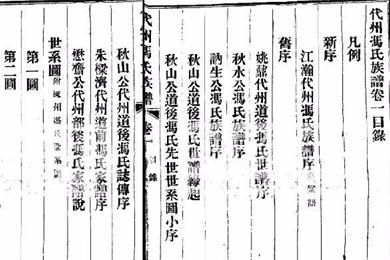 代州馮氏族譜卷一目錄
凡例
新序
江瀚代州馮氏族譜序
舊序
姚鼐代州道後馮氏世譜序
秋水公馮氏族譜序
訥生公馮氏族譜序
秋山公道後馮氏世譜緣起
秋山公道後馮氏先世世系圖小序
代州馮氏族譜 卷一 目錄
秋山公代州道後馮氏誌傳序
朱樑濟代州道前馮氏家譜序
懋齋公代州部後馮氏家譜說
世系圖
第一圖
第二圖